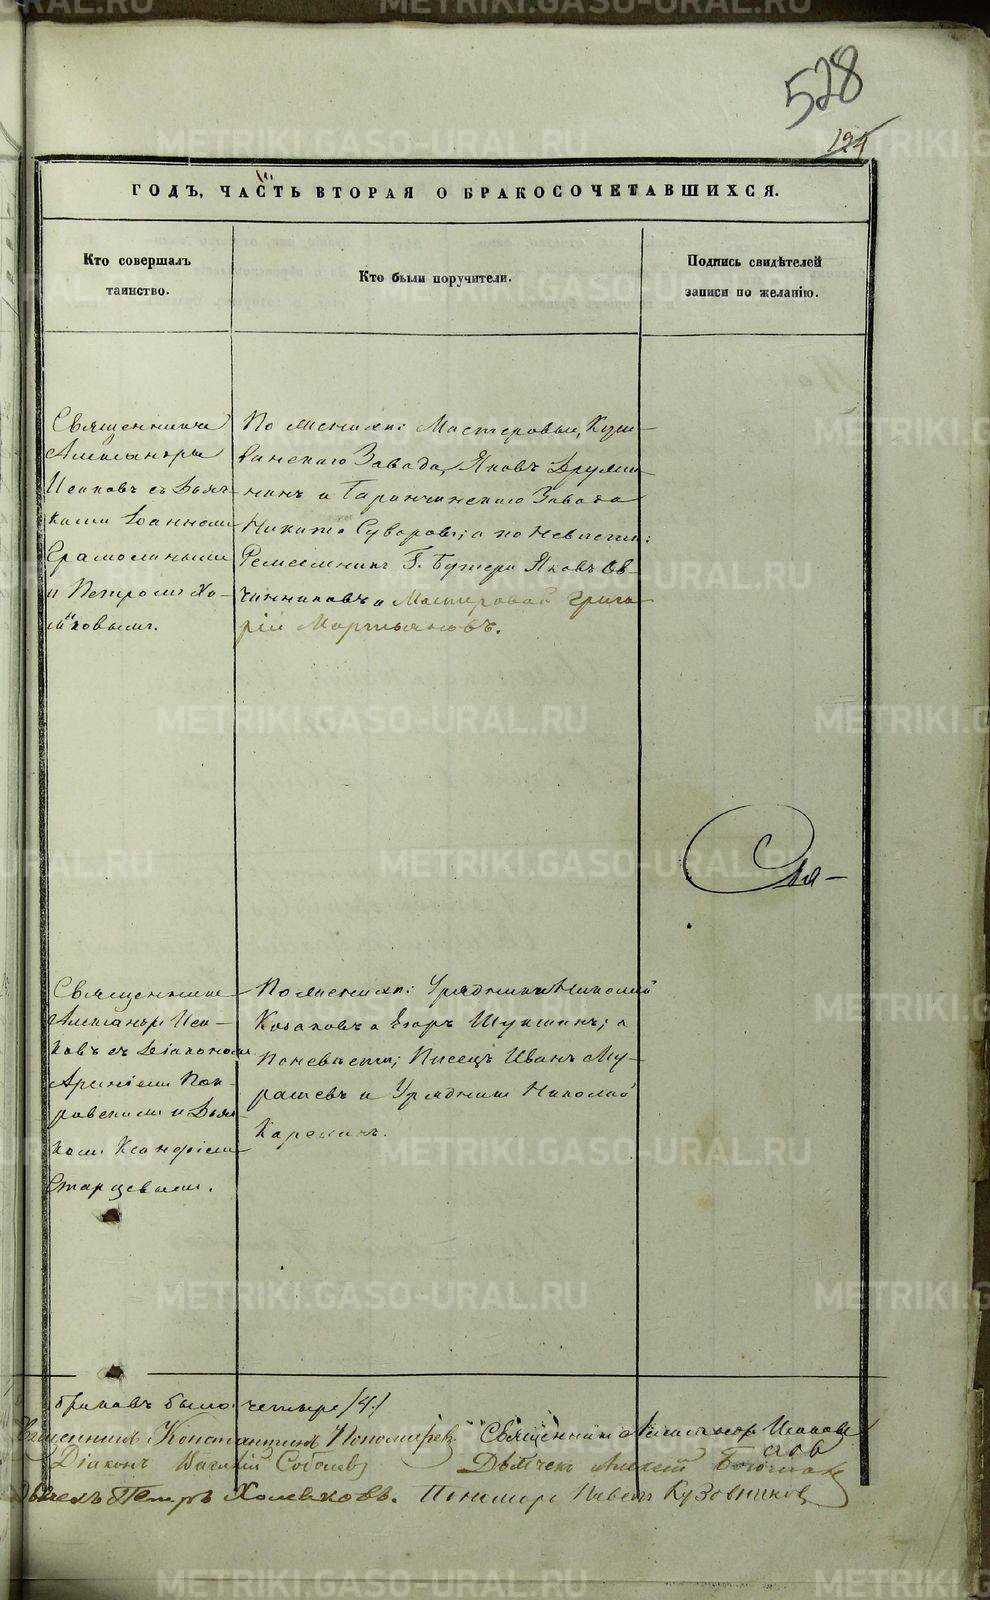 528
194
ГОДЪ, ЧАСТЬ ВТОРАЯ О БРАКОСОЧЕТАВШИХСЯ.
Кто совершалъ
таинство.
Кто были поручители.
Подпись свидѣтелей
записи по желанію.
Священникъ
Александръ
Исаковъ съ Дьяч-
ками Іоанномъ
и Петромъ Хо-
мяковымъ.
По женихѣ: Мастеровые, Куш-
винскаго Завода, Яковъ
и Баранчинскаго Завода
Никита Суворовъ; а по невѣстѣ:
Яковъ Ов-
чинниковъ и Мастеровой Григо-
рій Мартьяновъ.
Священникъ
Александръ Иса-
ковъ съ Діакономъ
Арсеніемъ Пок-
ровскимъ и Дьяч-
комъ Ксанфіемъ
Старцевымъ.
По женихѣ: Урядники Николай
Казаковъ и Егоръ Шукшинъ; а
по невѣстѣ; Писецъ Иванъ Му-
рашевъ и Урядникъ Николай
Карелинъ.
браковъ было четыре /4./
Священникъ Константинъ Пономаревъ
Священникъ Александръ Исаковъ
Діаконъ Василій Соболевъ
Дьячекъ Алексѣй
Дьячекъ Петръ Хомяковъ.
Пономарь Павелъ Кузовниковъ
METRIKI.GASO-URAL.RU